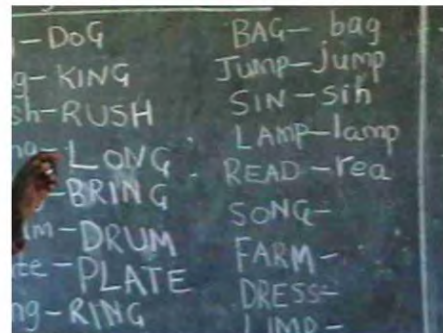 -DOG
g-KING
sh-RUSH
ng-LONG
-BRING
um-DRUM
te-PLATE
ng-RING
BAG-bag
Jump-jump
SIN-sin
LAMP-lamp
READ-rea
SONG-
FARM-
DRESS-